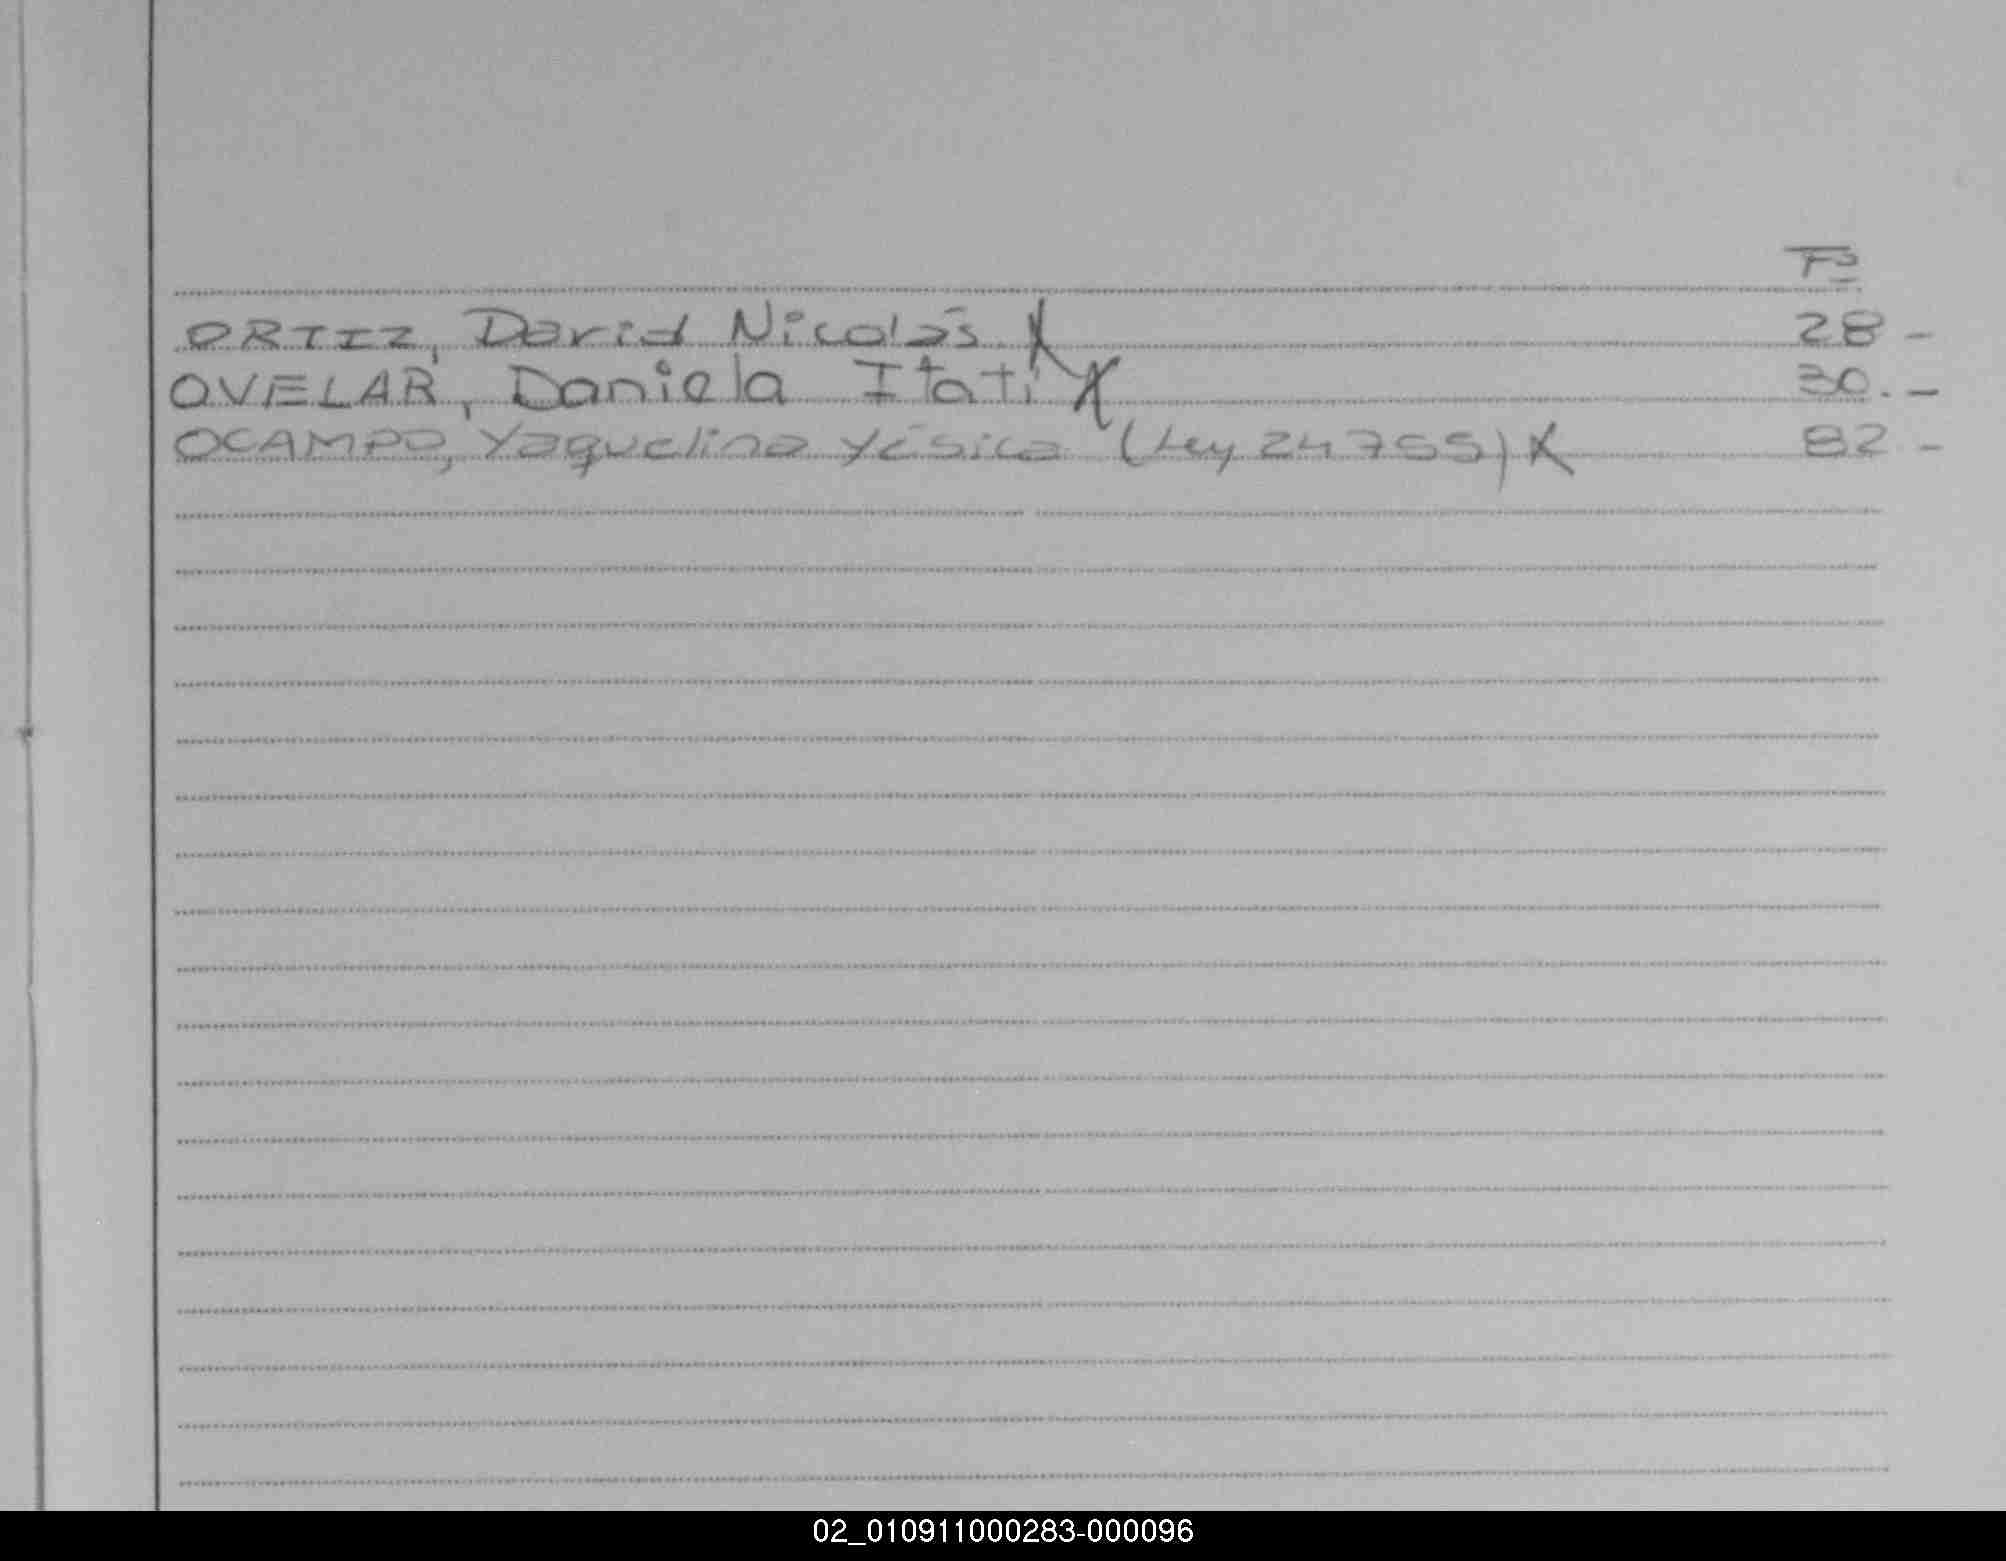 Fº
ORTIZ, David Nicolás X 28 -
OVELAR, Daniela Itatí X 30. -
OCAMPO, Yaquelina Yésica (Ley 24755) X 82 -
02_010911000283-000096